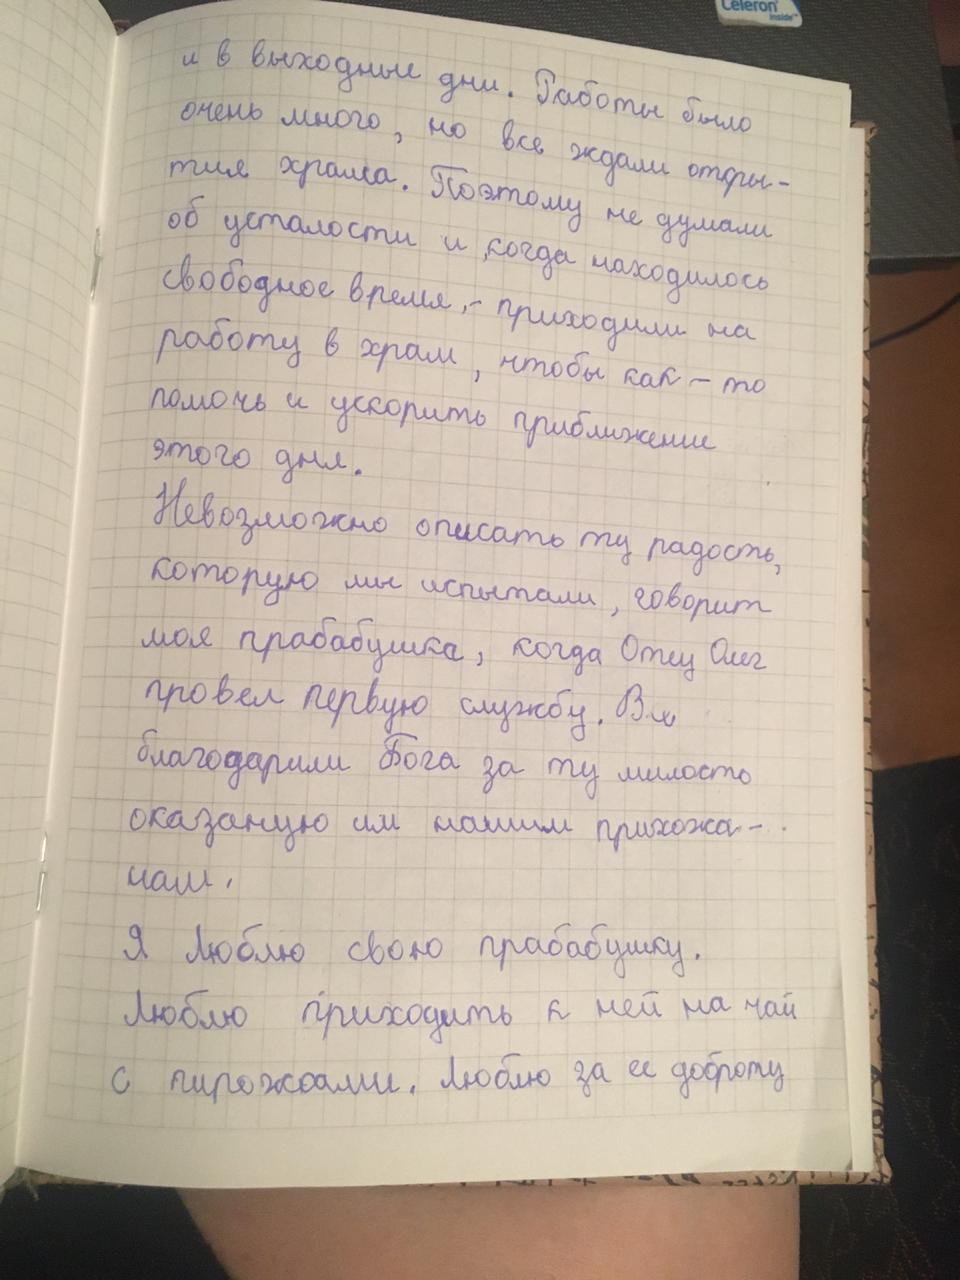 Celeron
inside™
и в выходные дни. Работы было
очень много, но все ждали откры-
тия храма. Поэтому не думали
об усталости и когда находилось
свободное время, - приходили на
работу в храм, чтобы как-то
помочь и ускорить приближение
этого дня.
Невозможно описать ту радость,
которую мы испытали, говорит
моя прабабушка, когда Отец Олег
провел первую службу. Все
благодарили Бога за ту милость
оказаную им нашим прихожа-
нам.
Я люблю свою прабабушку.
Люблю приходить к ней на чай
с пирожками. Люблю за ее доброту